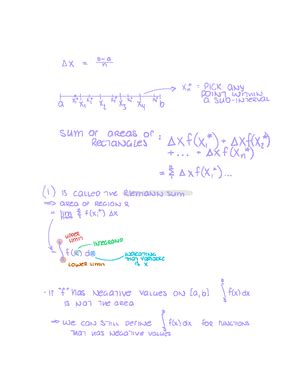 Δx = b-a/n
a x₁ x₂ x₃ x₄ b
xₙ* : PICK ANY
POINT WITHIN
A SUB-INTERVAL
SUM OF AREAS OF
RECTANGLES : Δx f(x₁*) + Δx f(x₂*)
+ ... + Δx f(xₙ*)
= Σ Δx f(xᵢ*) ...
(1) IS CALLED THE RIEMANN SUM
⇒ AREA OF REGION R
= lim Σ f(xᵢ*) Δx
UPPER
LIMIT
INTEGRAND
∫ f(x) dx
INDICATING
THAT VARIABLE
IS X
LOWER LIMIT
· IF "f" HAS NEGATIVE VALUES ON [a,b] ∫ f(x) dx
IS NOT THE AREA
⇒ WE CAN STILL DEFINE ∫ f(x) dx FOR FUNCTIONS
THAT HAS NEGATIVE VALUES